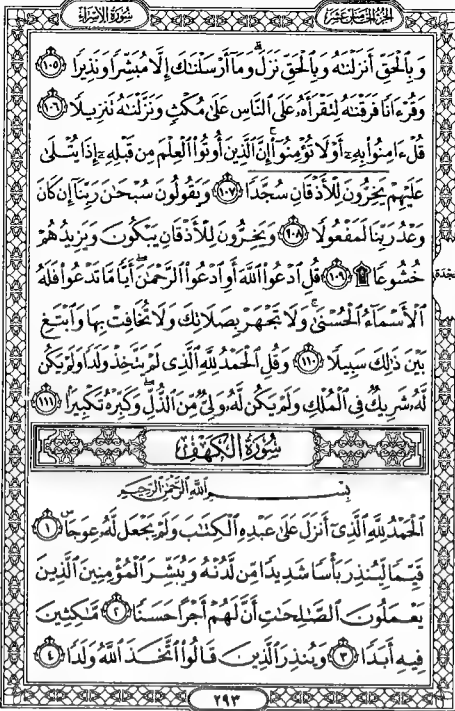 الجزء الخامس عشر
سورة الإسراء
وَبِٱلْحَقِّ أَنزَلْنَٰهُ وَبِٱلْحَقِّ نَزَلَ ۗ وَمَآ أَرْسَلْنَٰكَ إِلَّا مُبَشِّرًا وَنَذِيرًا ١٠٥
وَقُرْءَانًا فَرَقْنَٰهُ لِتَقْرَأَهُۥ عَلَى ٱلنَّاسِ عَلَىٰ مُكْثٍ وَنَزَّلْنَٰهُ تَنزِيلًا ١٠٦
قُلْ ءَامِنُوا۟ بِهِۦٓ أَوْ لَا تُؤْمِنُوٓا۟ ۚ إِنَّ ٱلَّذِينَ أُوتُوا۟ ٱلْعِلْمَ مِن قَبْلِهِۦٓ إِذَا يُتْلَىٰ
عَلَيْهِمْ يَخِرُّونَ لِلْأَذْقَانِ سُجَّدًا ١٠٧ وَيَقُولُونَ سُبْحَٰنَ رَبِّنَآ إِن كَانَ
وَعْدُ رَبِّنَا لَمَفْعُولًا ١٠٨ وَيَخِرُّونَ لِلْأَذْقَانِ يَبْكُونَ وَيَزِيدُهُمْ
خُشُوعًا ۩ ١٠٩ قُلِ ٱدْعُوا۟ ٱللَّهَ أَوِ ٱدْعُوا۟ ٱلرَّحْمَٰنَ ۖ أَيًّا مَّا تَدْعُوا۟ فَلَهُ
ٱلْأَسْمَآءُ ٱلْحُسْنَىٰ ۚ وَلَا تَجْهَرْ بِصَلَاتِكَ وَلَا تُخَافِتْ بِهَا وَٱبْتَغِ
بَيْنَ ذَٰلِكَ سَبِيلًا ١١٠ وَقُلِ ٱلْحَمْدُ لِلَّهِ ٱلَّذِى لَمْ يَتَّخِذْ وَلَدًا وَلَمْ يَكُن
لَّهُۥ شَرِيكٌ فِى ٱلْمُلْكِ وَلَمْ يَكُن لَّهُۥ وَلِىٌّ مِّنَ ٱلذُّلِّ ۖ وَكَبِّرْهُ تَكْبِيرًۢا ١١١
سورة الكهف
بِسْمِ ٱللَّهِ ٱلرَّحْمَٰنِ ٱلرَّحِيمِ
ٱلْحَمْدُ لِلَّهِ ٱلَّذِىٓ أَنزَلَ عَلَىٰ عَبْدِهِ ٱلْكِتَٰبَ وَلَمْ يَجْعَل لَّهُۥ عِوَجَا ۜ ١
قَيِّمًا لِّيُنذِرَ بَأْسًا شَدِيدًا مِّن لَّدُنْهُ وَيُبَشِّرَ ٱلْمُؤْمِنِينَ ٱلَّذِينَ
يَعْمَلُونَ ٱلصَّٰلِحَٰتِ أَنَّ لَهُمْ أَجْرًا حَسَنًا ٢ مَّٰكِثِينَ
فِيهِ أَبَدًا ٣ وَيُنذِرَ ٱلَّذِينَ قَالُوا۟ ٱتَّخَذَ ٱللَّهُ وَلَدًا ٤
٢٩٣